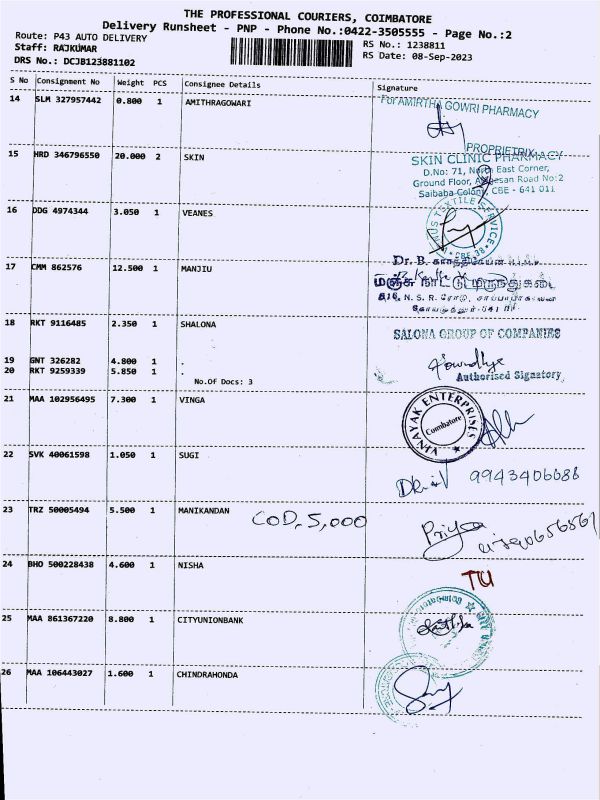 THE PROFESSIONAL COURIERS, COIMBATORE
Delivery Runsheet - PNP - Phone No.:0422-3505555 - Page No.:2
Route: P43 AUTO DELIVERY
RS No.: 1238811
Staff: RAJKUMAR
RS Date: 08-Sep-2023
DRS No.: DCJB123881102
S No Consignment No Weight PCS Consignee Details Signature
14 SLM 327957442 0.800 1 AMITHRAGOWARI
For AMIRTHA GOWRI PHARMACY
PROPRIETRIX
15 HRD 346796550 20.000 2 SKIN
SKIN CLINIC PHARMACY
D.No: 71, North East Corner,
Ground Floor, Road No:2
Saibaba Colony, CBE - 641 011
16 DDG 4974344 3.050 1 VEANES
TEXTILE SERVICE
CBE 38
17 CMM 862576 12.500 1 MANJIU
Dr. B.
மஞ்சு நாட்டு மருந்து கடை
N. S. R. ரோடு,
18 RKT 9116485 2.350 1 SHALONA
SALONA GROUP OF COMPANIES
19 GNT 326282 4.800 1 .
20 RKT 9259339 5.850 1 .
Authorised Signatory
No.Of Docs: 3
21 MAA 102956495 7.300 1 VINGA
VINAYAK ENTERPRISES
Coimbatore
22 SVK 40061598 1.050 1 SUGI
23 TRZ 50005494 5.500 1 MANIKANDAN
COD. 5,000
Priya
24 BHO 500228438 4.600 1 NISHA
TU
25 MAA 861367220 8.800 1 CITYUNIONBANK
26 MAA 106443027 1.600 1 CHINDRAHONDA